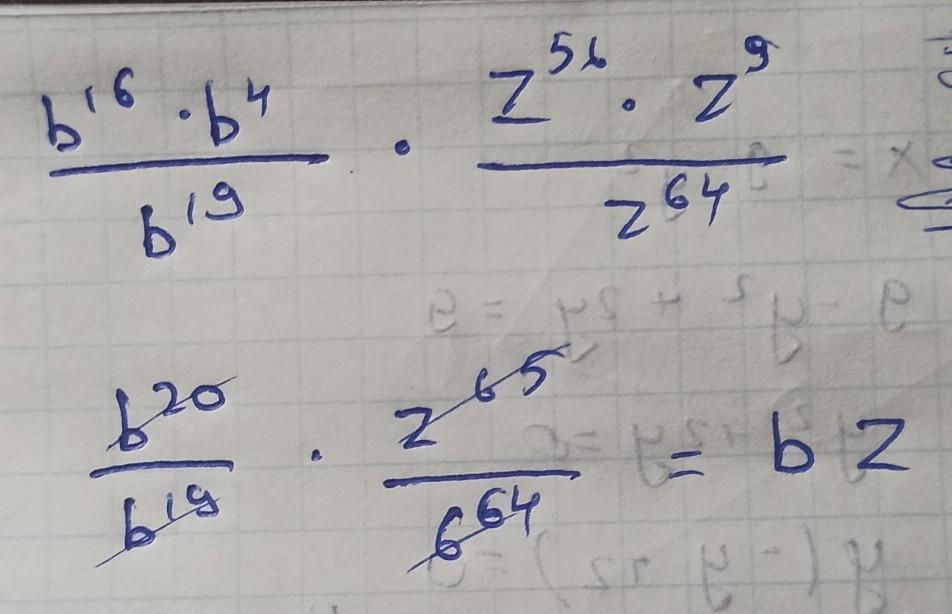 b¹⁶ · b⁴ / b¹⁹ · z⁵⁶ · z⁹ / z⁶⁴
b²⁰ / b¹⁹ · z⁶⁵ / 6⁶⁴ = b z